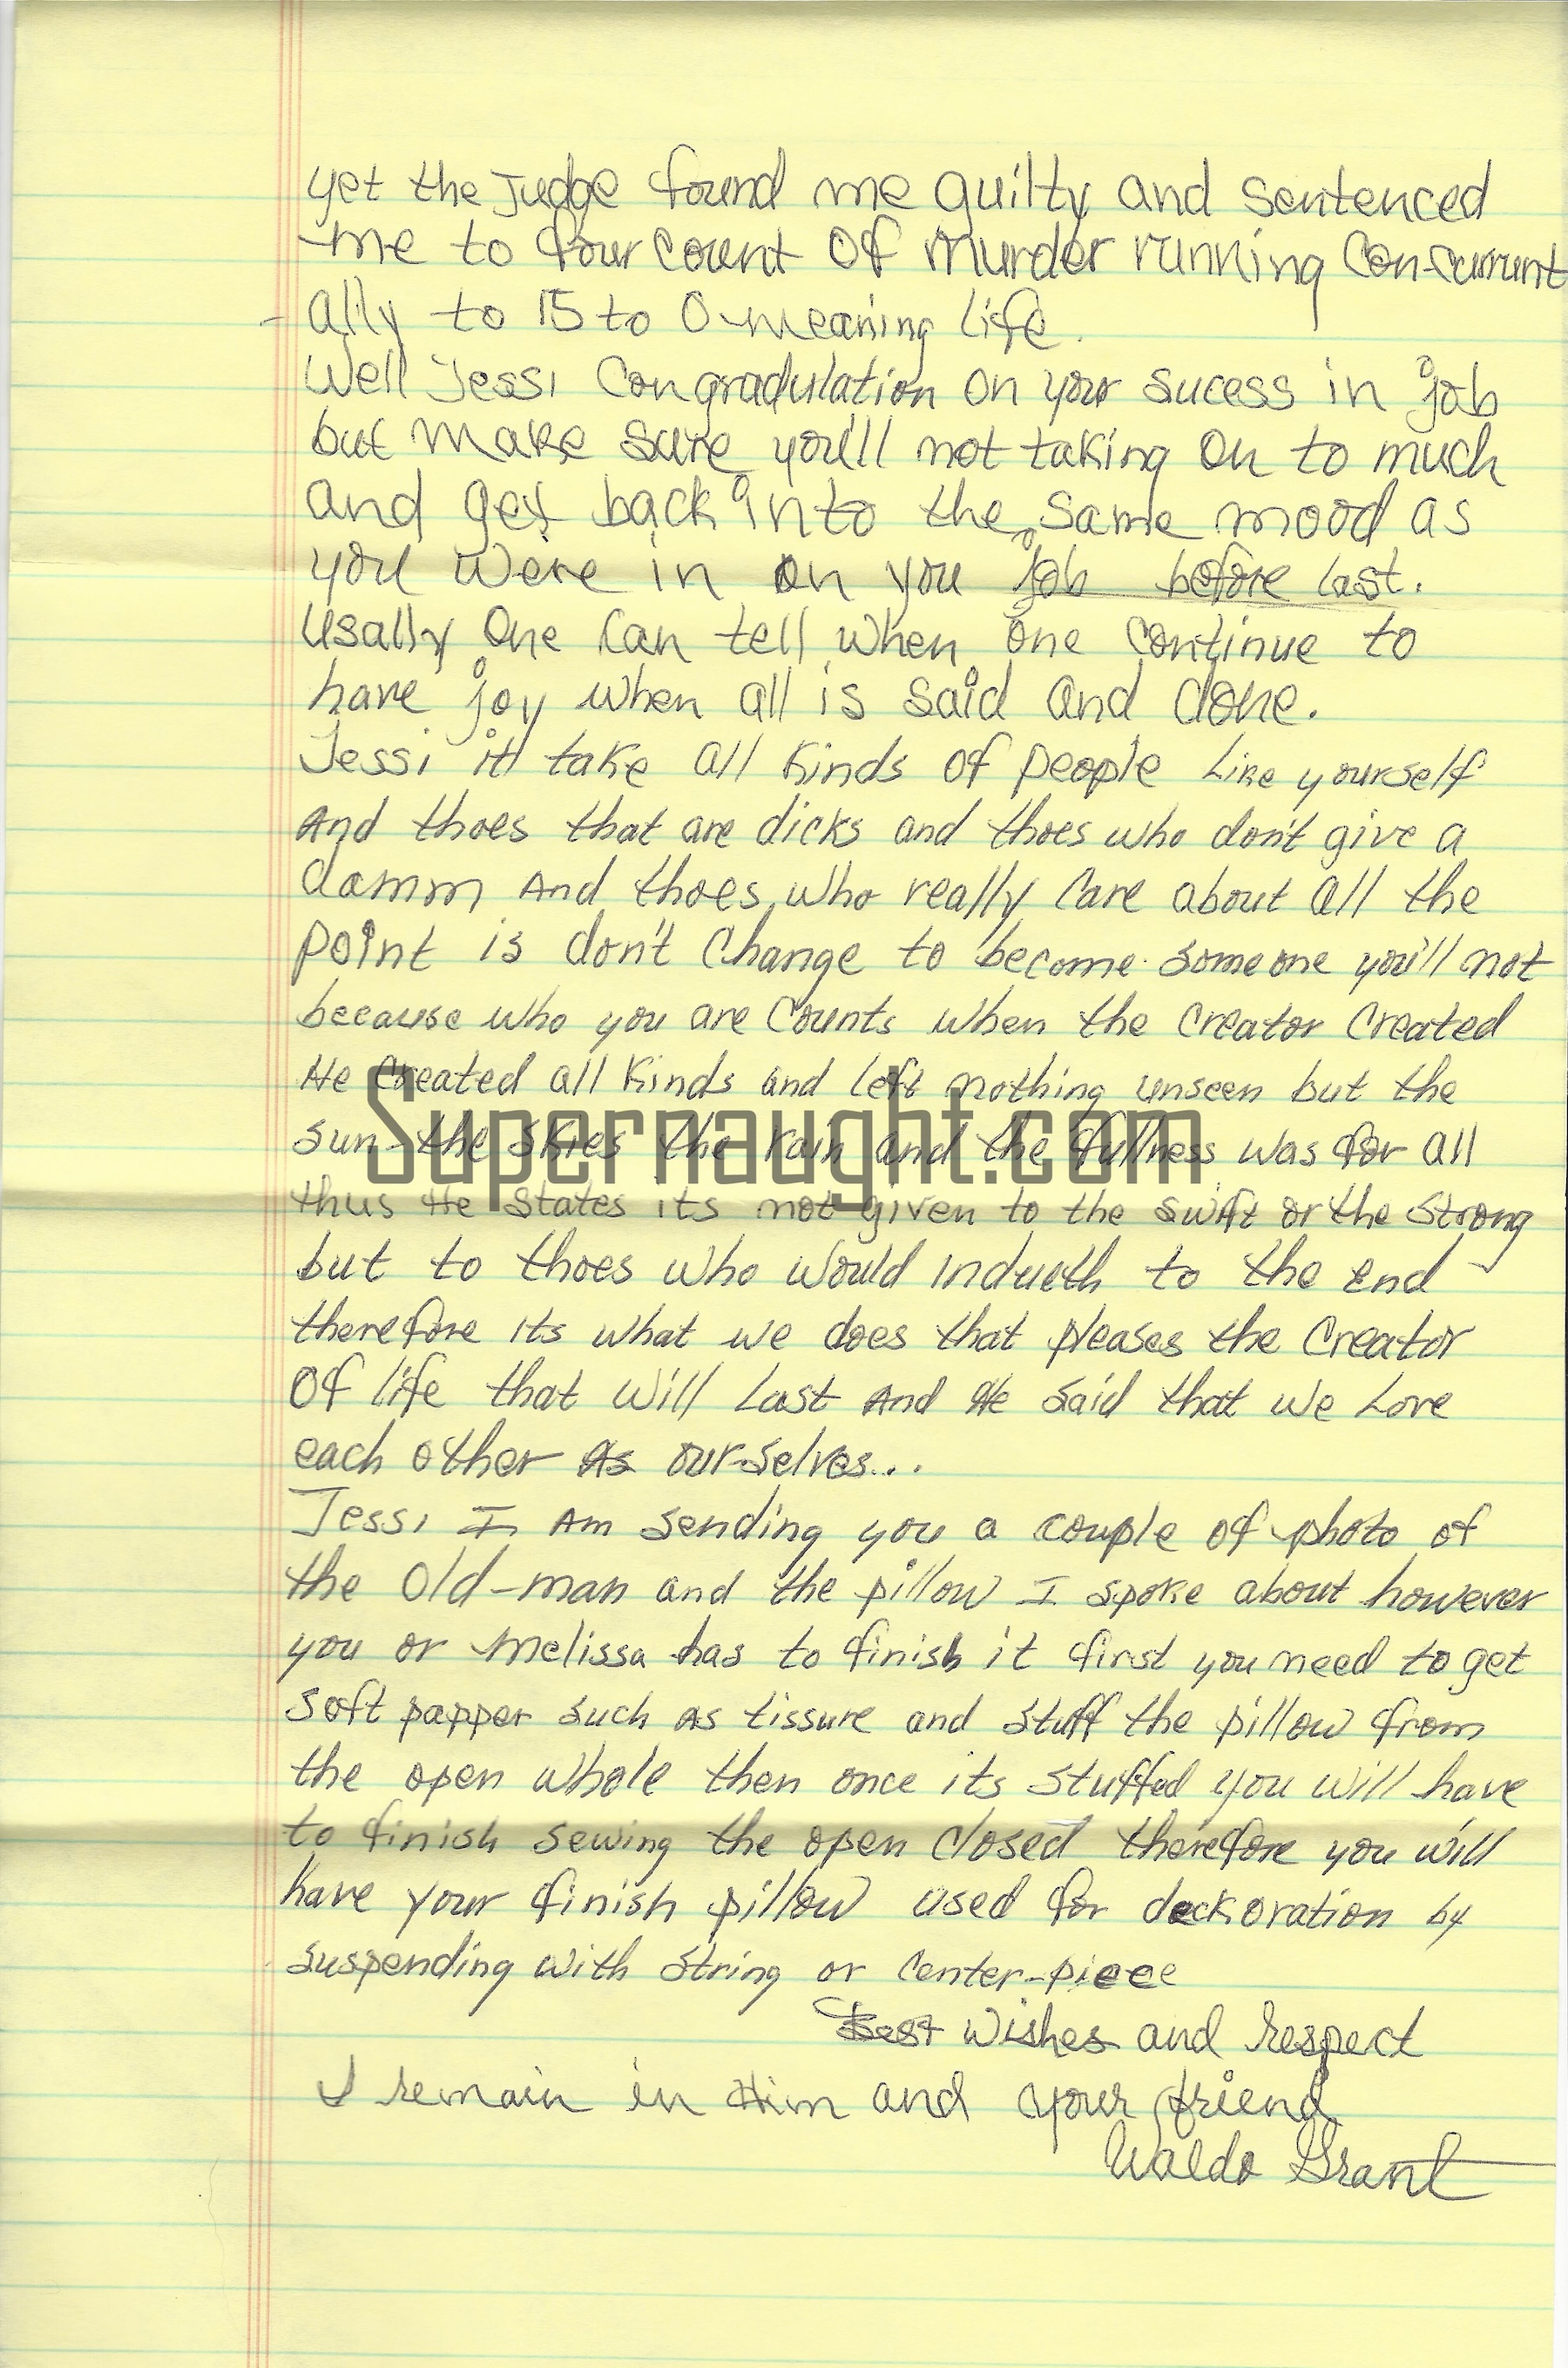 yet the Judge found me guilty and sentenced
me to four count of Murder running Con-currunt
-ally to 15 to 0 meaning life.
Well Jessi Congradulation on your sucess in job
but make sure you'll not taking on to much
and get back into the same mood as
you were in on you job before last.
Usally one can tell when one continue to
have joy when all is said and done.
Jessi it take all kinds of people like yourself
And thoes that are dicks and thoes who don't give a
damm And thoes who really care about all the
point is don't change to become someone you'll not
because who you are Counts when the Creator Created
He Created all kinds and left nothing unseen but the
sun-the skies the rain and the fullness was for all
Supernaught.com
thus He states its not given to the swift or the strong
but to thoes who would indueth to the end
therefore its what we does that pleases the Creator
of life that will last And He said that we Love
each other As our-selves...
Jessi I Am sending you a couple of photo of
the Old-man and the pillow I spoke about however
you or Melissa has to finish it first you need to get
soft papper such as tissure and stuff the pillow from
the open whole then once its stuffed you will have
to finish sewing the open closed therefore you will
have your finish pillow used for deckoration by
suspending with string or center-piece
Best Wishes and respect
I remain in Him and your friend
Waldo Grant